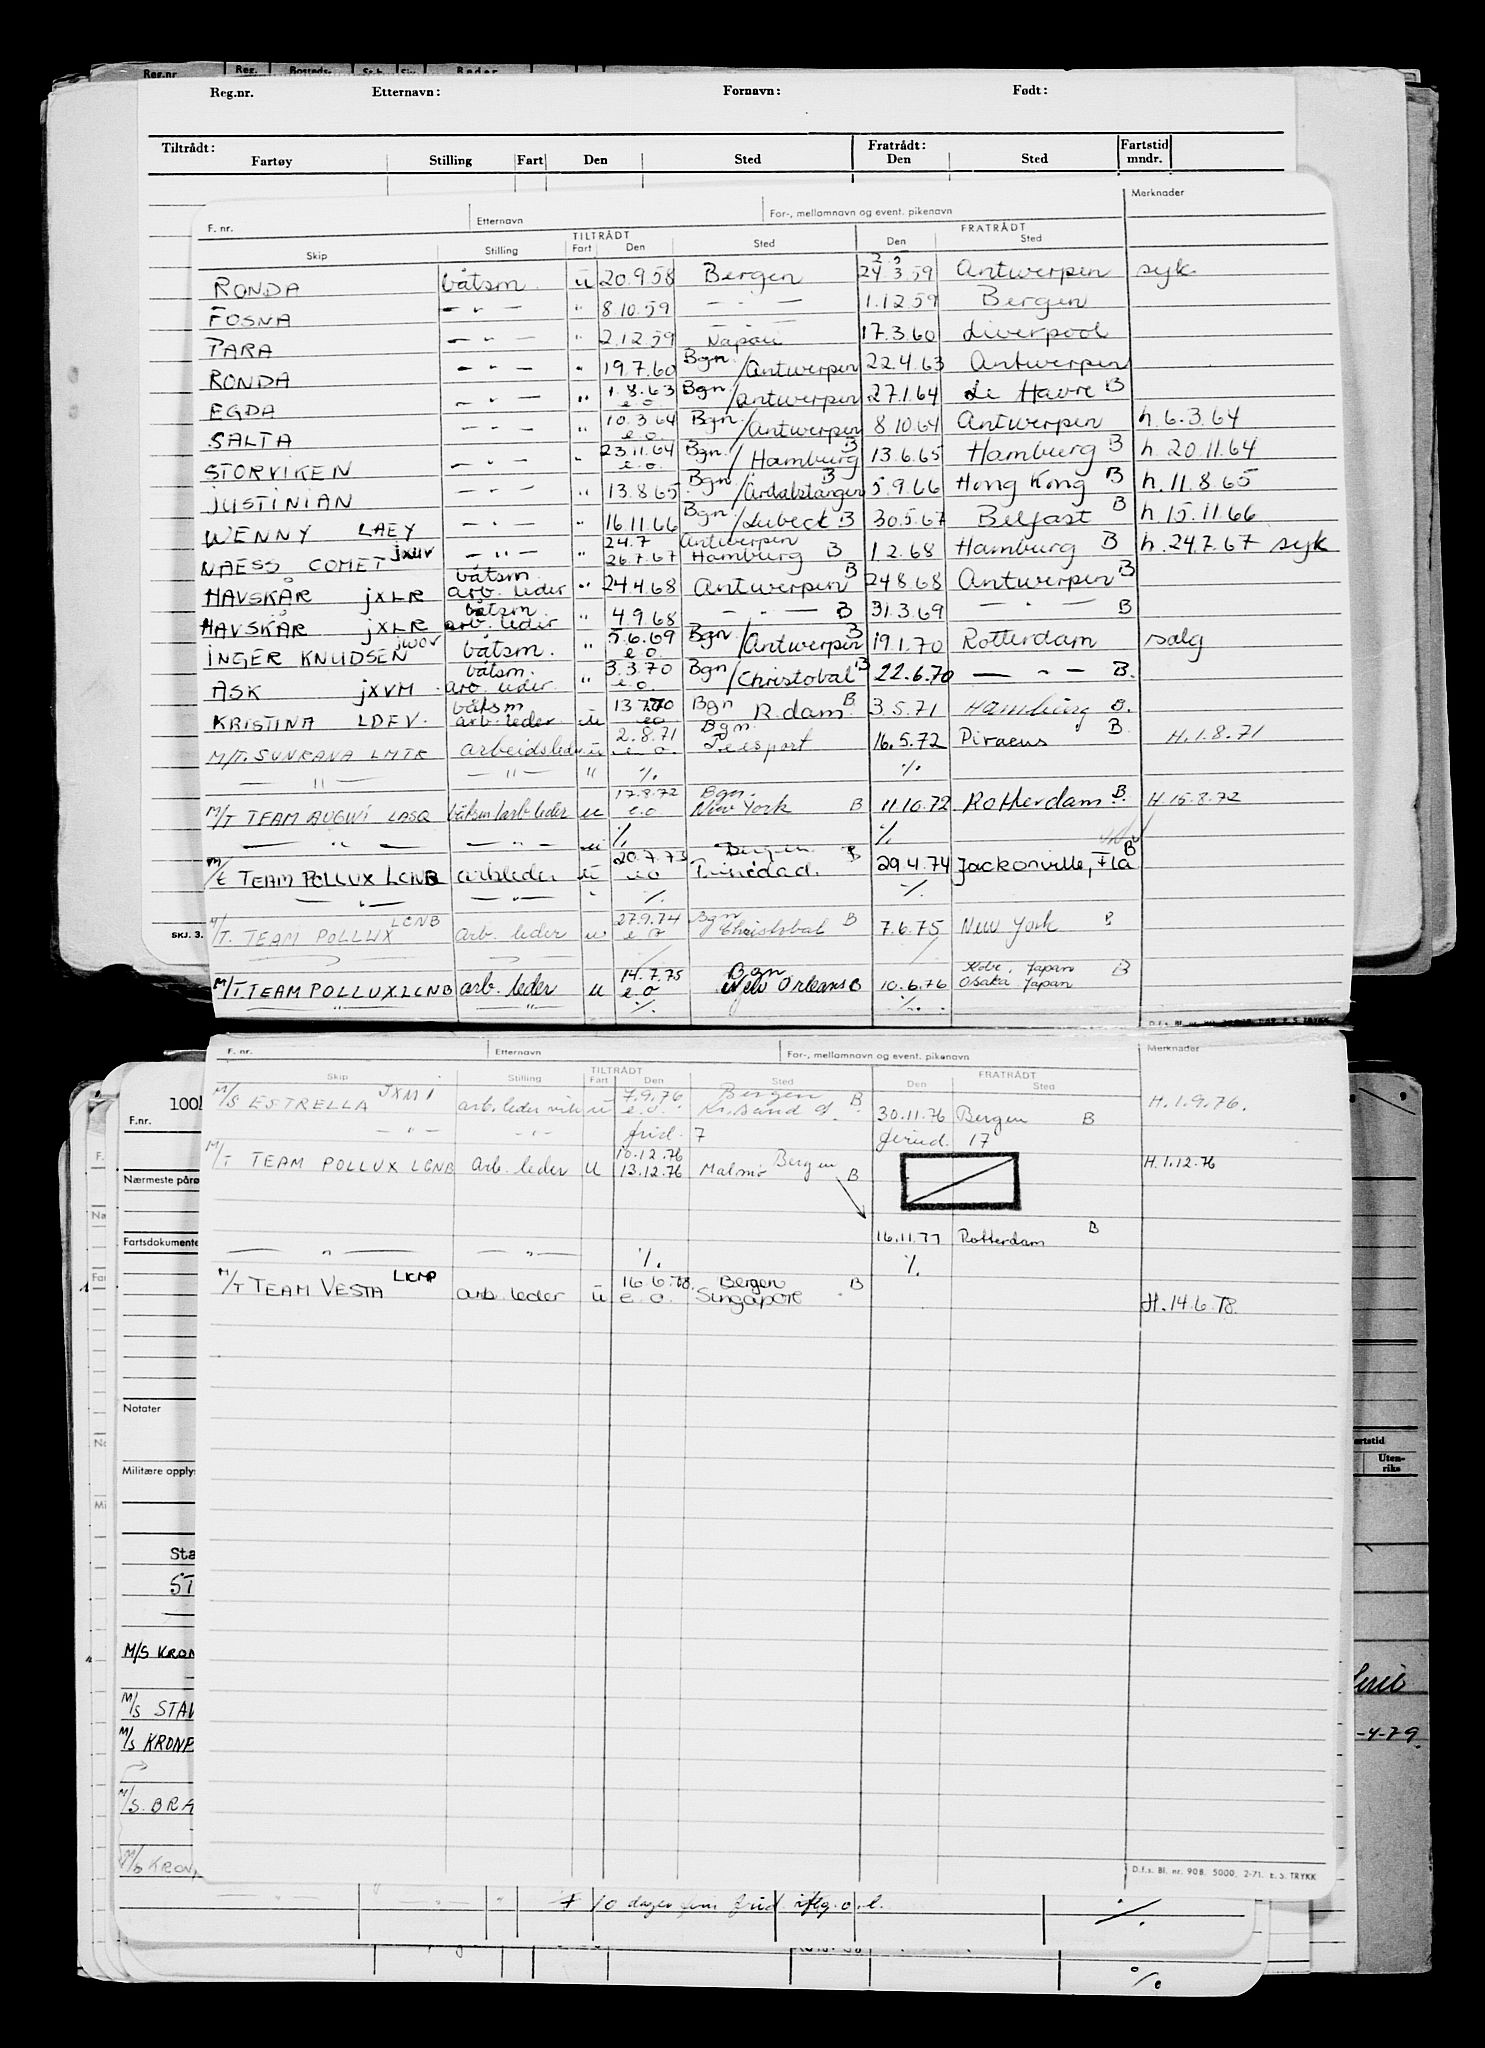 Reg.nr. Etternavn: Fornavn: Født:
Tiltrådt: Fratrådt: Fartstid
Fartøy Stilling Fart Den Sted Den Sted mndr.
Merknader
F. nr. Etternavn For-, mellomnavn og event. pikenavn
TILTRÅDT FRATRÅDT
Skip Stilling Fart Den Sted Den Sted
RONDA båtsm. u 20.9.58 Bergen 24.3.59 Antwerpen syk.
FOSNA — " — " 8.10.59 — " — 1.12.59 Bergen
PARA — " — " 2.12.59 Napoli 17.3.60 Liverpool
RONDA — " — " 19.7.60 Bgn./Antwerpen 22.4.63 Antwerpen
EGDA — " — " 1.8.63 e.o. Bgn./Antwerpen 27.1.64 Le Havre B
SALTA — " — " 10.3.64 e.o. Bgn./Antwerpen 8.10.64 Antwerpen h. 6.3.64
STORVIKEN — " — " 23.11.64 e.o. Bgn./Hamburg B 13.6.65 Hamburg B h. 20.11.64
JUSTINIAN — " — " 13.8.65 Bgn/Årdalstangen B 5.9.66 Hong Kong B h. 11.8.65
WENNY LAEY — " — " 16.11.66 Bgn./Lubeck B 30.5.67 Belfast B h. 15.11.66
24.7 Antwerpen
NAESS COMET jxuv — " — " 26.7.67 Hamburg B 1.2.68 Hamburg B h. 24.7.67 syk
HAVSKÅR jXLR båtsm. arb. leder " 24.4.68 Antwerpen B 24.8.68 Antwerpen B
HAVSKÅR jXLR båtsm. arb. leder " 4.9.68 — " — B 31.3.69 — " — B
INGER KNUDSEN jwov båtsm. " 5.6.69 e.o. Bgn/Antwerpen B 19.1.70 Rotterdam salg
ASK jXVM båtsm. arb. leder " 3.3.70 e.o. Bgn/Christobal B 22.6.70 — " — B.
KRISTINA LDEV. båtsm arb. leder. u 13.7.70 eo Bgn R.dam. B 3.5.71 Hamburg B.
M/T. SUNRANA LMTR arbeidsleder u 2.8.71 e.o. Bgn. 16.5.72 Piraeus B H.1.8.71
— " — — " — " % %
M/T TEAM AUGWI LASQ båtsm/arb leder u 17.8.72 e.o. Bgn. New York B 11.10.72 Rotterdam B. H.15.8.72
— " — — " — u % %
M/t TEAM POLLUX LCNB arbleder u 20.7.73 eo Bergen Trinidad. B 29.4.74 Jacksonville, Fla B
— " — — " — " % %
M/T. TEAM POLLUX LCNB arb. leder u 27.9.74 e.o Bgn Christobal B 7.6.75 New York B
M/T. TEAM POLLUX LCNB arb. leder u 14.7.75 e.o Bgn New Orleans B 10.6.76 Kobe, Japan Osaka Japan B
" " % %
SKJ. 3.
F. nr. Etternavn For-, mellomnavn og event. pikenavn Merknader
TILTRÅDT FRATRÅDT
Skip Stilling Fart Den Sted Den Sted
M/S ESTRELLA JXMI arb. leder vik u 7.9.76 e.o. Bergen Kr.sand S. B 30.11.76 Bergen B H.1.9.76.
— " — — " — frid. 7 17
M/T TEAM POLLUX LCNB arb. leder u 10.12.76 13.12.76 Malmö Bergen B H.1.12.76
16.11.77 Rotterdam B
— " — — " — % %
M/T TEAM VESTA LKMP arb. leder u 16.6.78. e.o. Bergen Singapore B H.14.6.78.
D.f.s. Bl. nr. 908. 5000. 2-71. E. S. TRYKK
F.nr.
Nærmeste pårø
Fartsdokumente
Notater
Militære opplys
Sta
ST
M/S KRON
M/S STAV
M/S KRONP
M/S. BRA
M/S KRON
Uten-
riks
-4-79.
10 dager frid. iflg. o.l. %
%